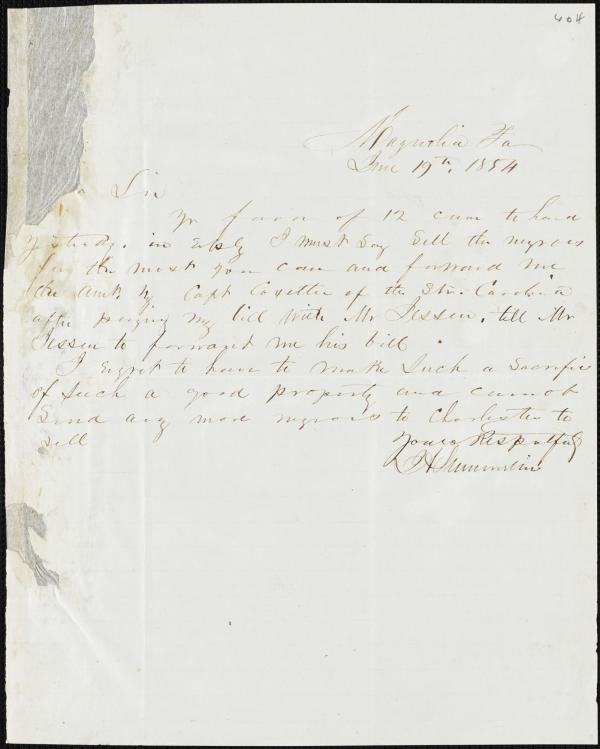 404
Magnolia Fa
June 19th, 1854
Sir
Yr favor of 12 came to hand
yesterday. in reply I must say sell the negroes
for the most you can and forward me
the amt. by Capt Coxetter of the Stmr Carolina
after paying my bill with Mr Jessen. tell Mr
Jessen to forward me his bill.
I regret to have to make such a sacrifice
of such a good property and cannot
send any more negroes to Charleston to
sell
Yours Respectfuly